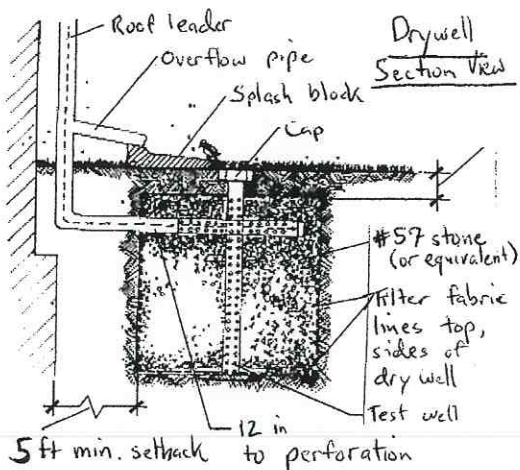 Roof leader
Overflow pipe
Splash block
Cap
Drywell
Section View
#57 stone
(or equivalent)
Filter fabric
lines top,
sides of
dry well
Test well
12 in
to perforation
5 ft min. setback